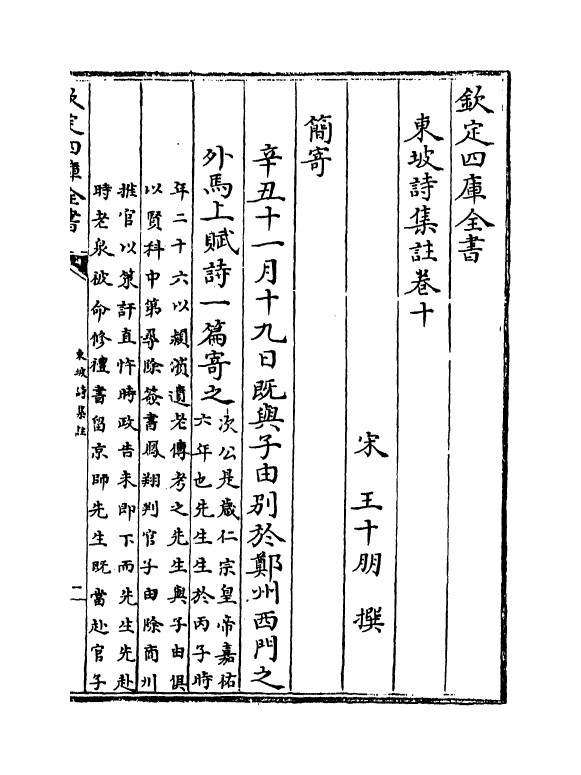 欽定四庫全書
東坡詩集註卷十
宋 王十朋 撰
簡寄
辛丑十一月十九日既與子由別於鄭州西門之
外馬上賦詩一篇寄之
次公是歲仁宗皇帝嘉祐
六年也先生生於丙子時
年二十六以潁濱遺老傳考之先生與子由俱
以賢科中第尋除簽書鳳翔判官子由除商州
推官以策訐直忤時政告未即下而先生先赴
時老泉被命修禮書留京師先生既當赴官子
欽定四庫全書
東坡詩集註
二